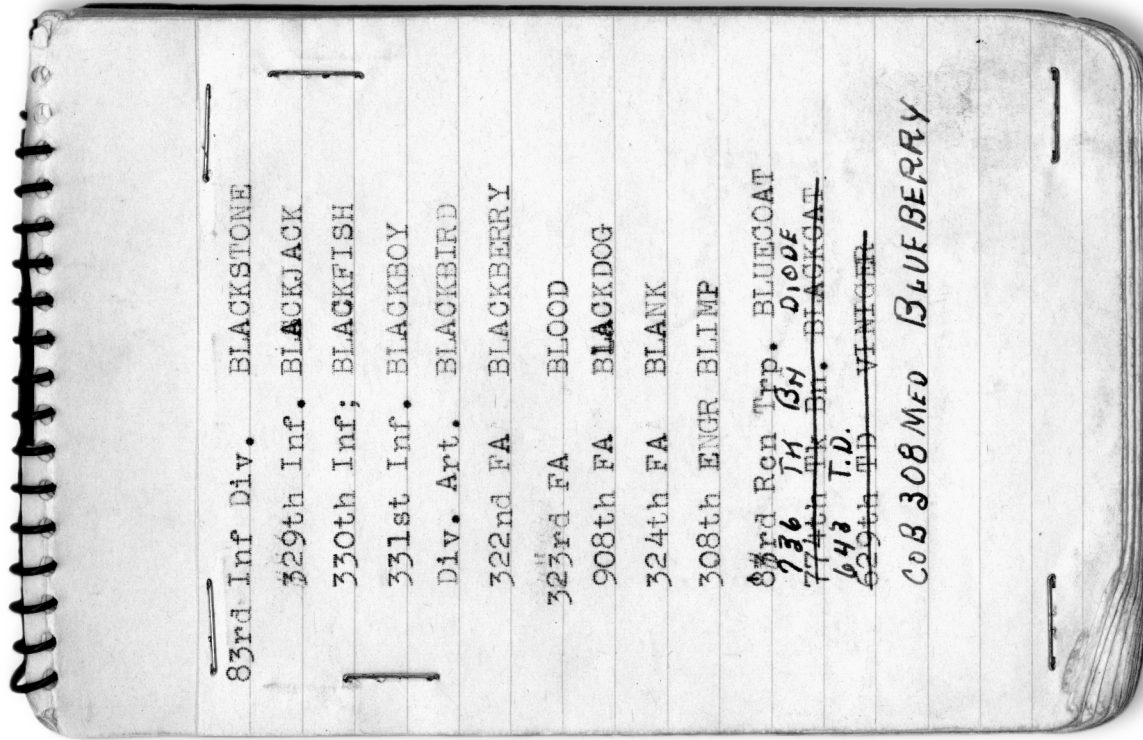 83rd Inf Div. BLACKSTONE
329th Inf. BLACKJACK
330th Inf; BLACKFISH
331st Inf. BLACKBOY
Div. Art. BLACKBIRD
322nd FA BLACKBERRY
323rd FA BLOOD
908th FA BLACKDOG
324th FA BLANK
308th ENGR BLIMP
83rd Rcn Trp. BLUECOAT
736 TK BN DIODE
774th Tk Bn. BLACKCAT
643 T.D.
629th TD VINIGER
COB 308 MED BLUEBERRY